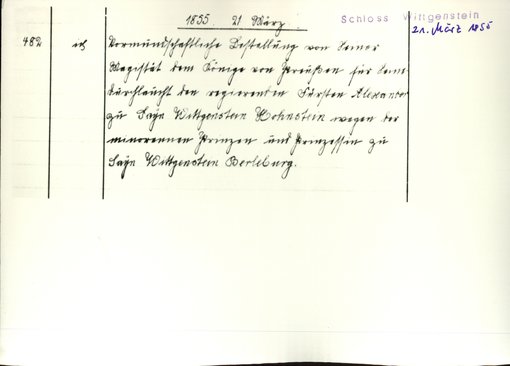 1855. 21 März
Schloss Wittgenstein
21. März 1855
482 ich Vormundschaftliche Bestellung von Seiner
Magistät dem Könige von Preußen für Seine
Durchlaucht den regierenden Fürsten Alexander
zu Sayn Wittgenstein Hohnstein wegen der
minorennen Prinzen und Prinzessin zu
Sayn Wittgenstein Berleburg.